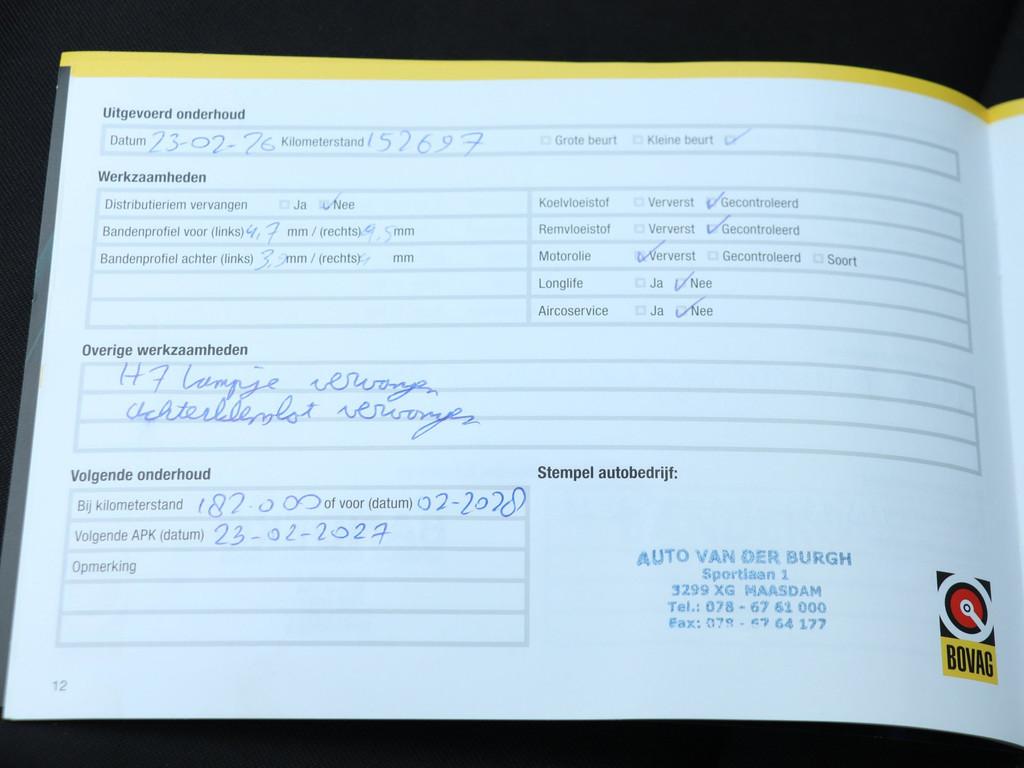 Uitgevoerd onderhoud
Datum 23-02-26 Kilometerstand 152697 Grote beurt Kleine beurt
Werkzaamheden
Distributieriem vervangen Ja Nee
Koelvloeistof Ververst Gecontroleerd
Bandenprofiel voor (links) 4,7 mm / (rechts) mm
Remvloeistof Ververst Gecontroleerd
Bandenprofiel achter (links) mm / (rechts) mm
Motorolie Ververst Gecontroleerd Soort
Longlife Ja Nee
Aircoservice Ja Nee
Overige werkzaamheden
H7 lampje vervangen
vervangen
Volgende onderhoud
Stempel autobedrijf:
Bij kilometerstand 182.000 of voor (datum) 02-2028
Volgende APK (datum) 23-02-2027
Opmerking
AUTO VAN DER BURGH
Sportlaan 1
3299 XG MAASDAM
Tel.: 078 - 67 61 000
Fax: 078 - 67 64 177
BOVAG
12